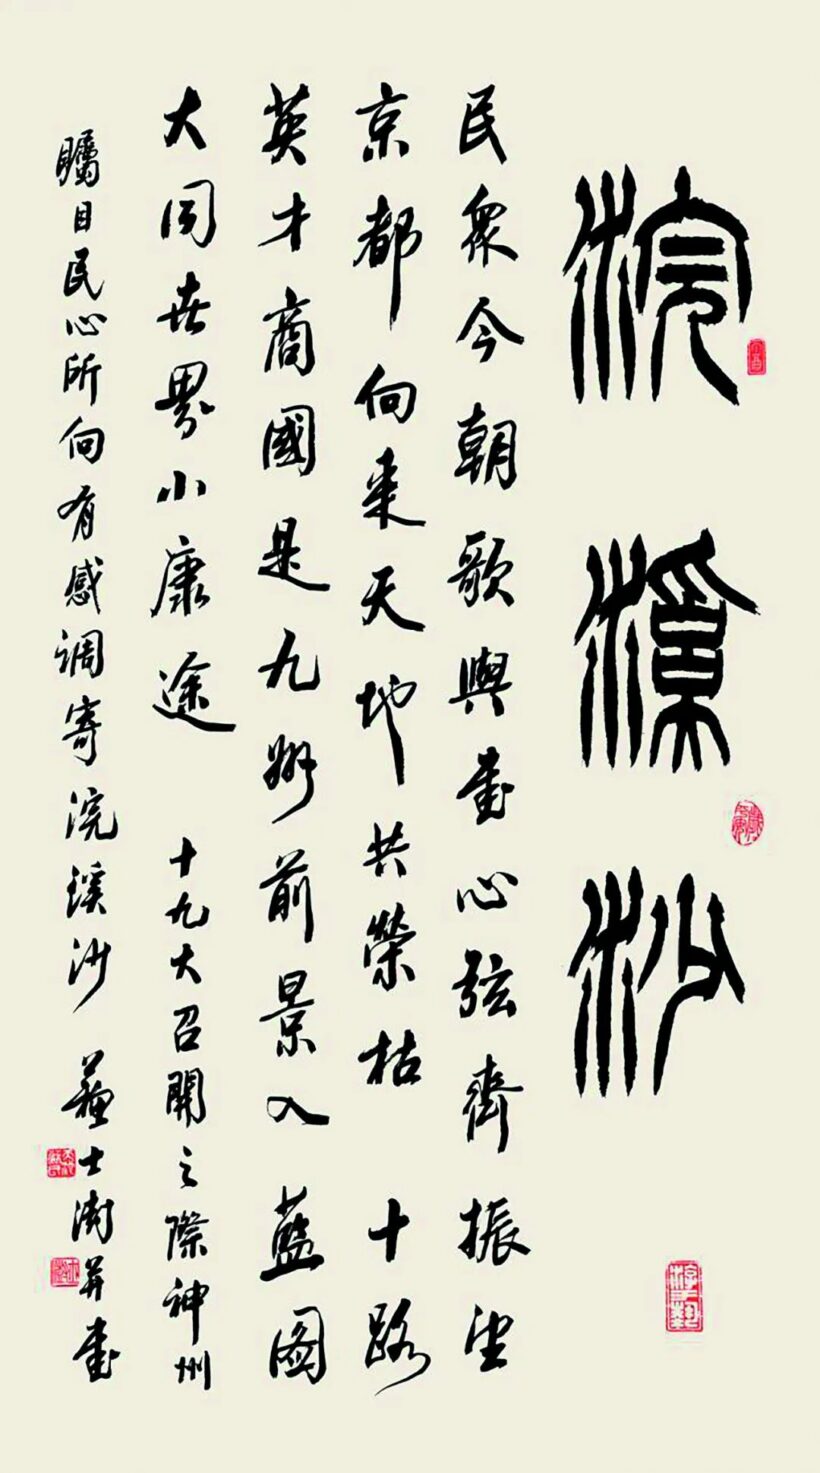 浣溪沙
民衆今朝歌與書心弦齊振望
京都向来天地共榮枯 十路
英才商國是九州前景入藍图
大同世界小康途 十九大召開之際神州
矚目民心所向有感调寄浣溪沙 蘇士澍并書